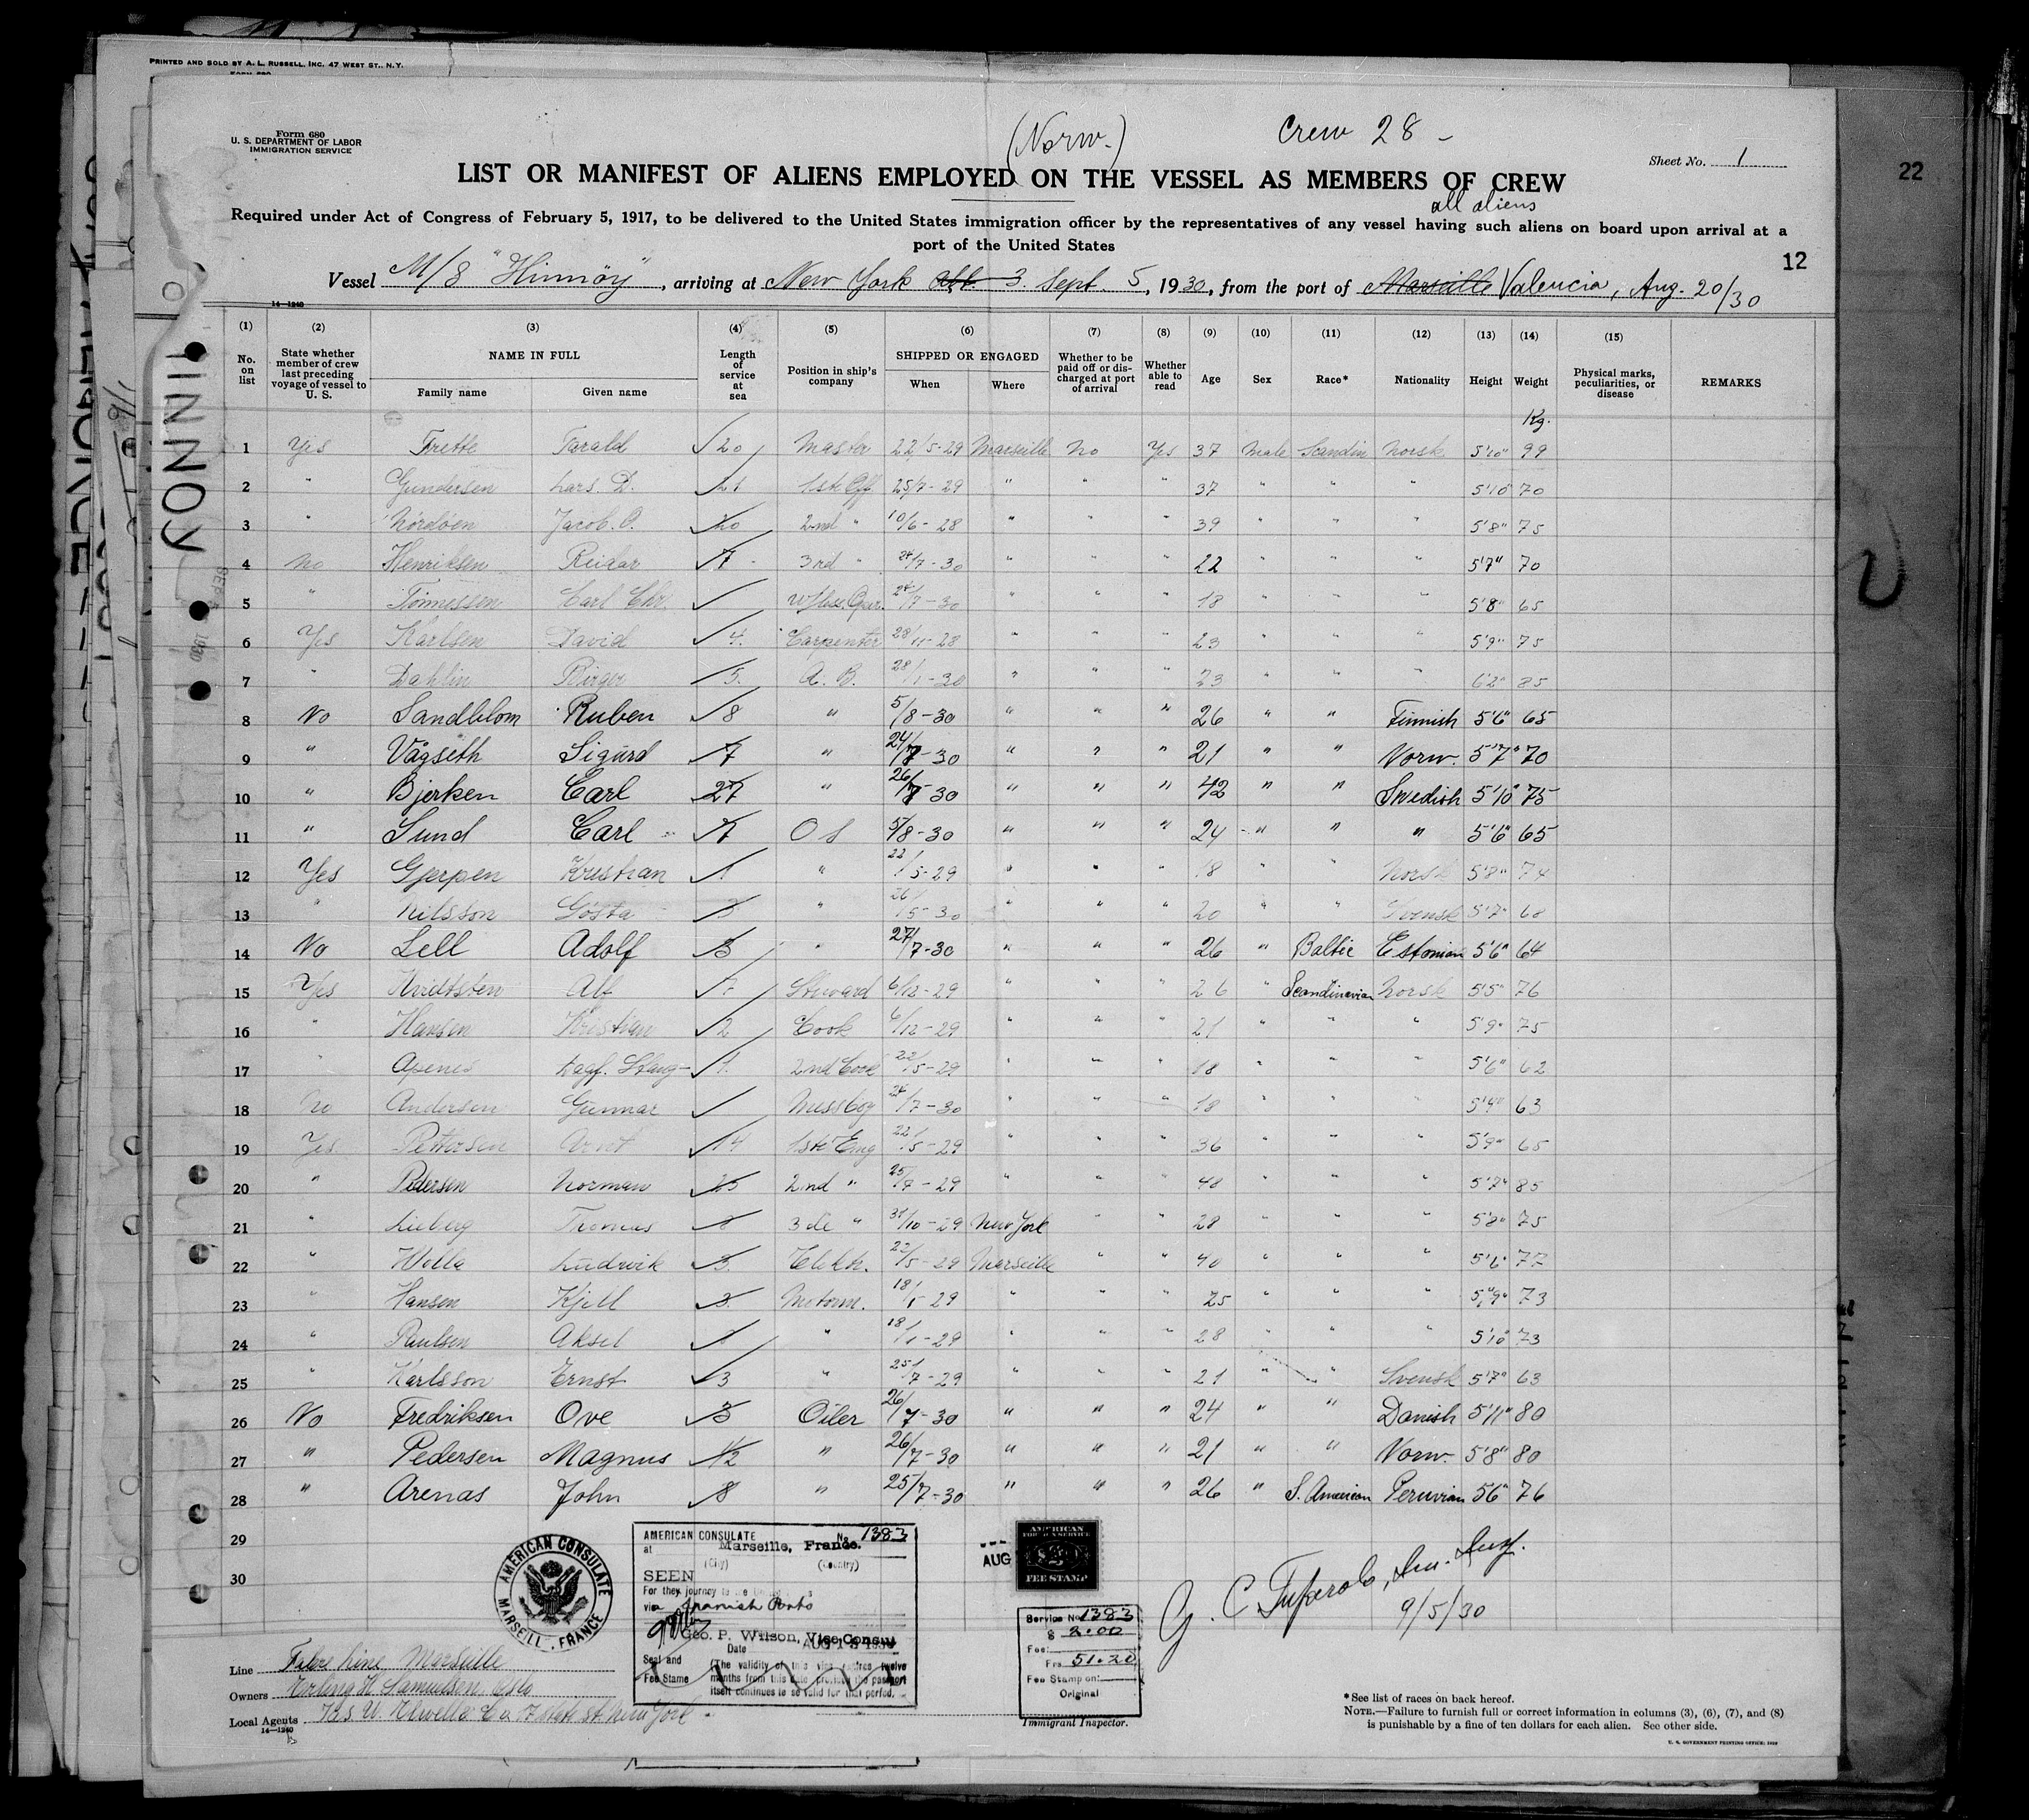 PRINTED AND SOLD BY A. L. RUSSELL, INC. 47 WEST ST., N.Y.
Form 680
U. S. DEPARTMENT OF LABOR
IMMIGRATION SERVICE
(Norw.)
Crew 28 -
Sheet No. 1
22
LIST OR MANIFEST OF ALIENS EMPLOYED ON THE VESSEL AS MEMBERS OF CREW
all aliens
Required under Act of Congress of February 5, 1917, to be delivered to the United States immigration officer by the representatives of any vessel having such aliens on board upon arrival at a
port of the United States
12
Vessel M/S "Hinnöy", arriving at New York abt. 3 Sept. 5, 1930, from the port of Marseille Valencia, Aug. 20/30
14-1240
HINNOY
(1) (2) (3) (4) (5) (6) (7) (8) (9) (10) (11) (12) (13) (14) (15)
No. on list
State whether member of crew last preceding voyage of vessel to U. S.
NAME IN FULL
Family name
Given name
Length of service at sea
Position in ship's company
SHIPPED OR ENGAGED
When
Where
Whether to be paid off or discharged at port of arrival
Whether able to read
Age
Sex
Race*
Nationality
Height
Weight
Physical marks, peculiarities, or disease
REMARKS
Kg.
1 Yes Frette Tarald 20 Master 22/5-29 Marseille No Yes 37 Male Scandin Norsk 5'10" 99
2 " Gundersen Lars. D. 21 1st Off 25/7-29 " " " 37 " " " 5'10" 70
3 " Nordöen Jacob. O. 20 2nd " 10/6-28 " " " 39 " " " 5'8" 75
4 No Henriksen Reidar 7 3rd " 24/7-30 " " " 22 " " " 5'7" 70
5 " Tönnessen Carl Chr. Wless. Oper. 24/7-30 " " " 18 " " " 5'8" 65
6 Yes Karlsen David 4. Carpenter 28/11-28 " " " 23 " " " 5'9" 75
7 " Dahlin Birger 5. A. B. 28/1-30 " " " 23 " " " 6'2" 85
8 No Sandblom Ruben 8 " 5/8-30 " " " 26 " " Finnish 5'6" 65
9 " Vågseth Sigurd 7 " 24/7-30 " " " 21 " " Norw. 5'7" 70
10 " Bjerken Carl 27 " 26/7-30 " " " 42 " " Swedish 5'10" 75
11 " Sund Carl 7 O S 5/8-30 " " " 24 " " " 5'6" 65
12 Yes Gjerpen Kristian 1 " 22/5-29 " " " 18 " " Norsk 5'8" 74
13 " Nilsson Gösta 3 " 26/5-30 " " " 20 " " Svensk 5'7" 68
14 No Lell Adolf 3 " 27/7-30 " " " 26 " Baltic Estonian 5'6" 64
15 Yes Alf 7 Steward 6/12-29 " " " 26 " Scandinavian Norsk 5'5" 76
16 " Hansen Kristian 2 Cook 6/12-29 " " " 21 " " " 5'9" 75
17 " Apenes Dagf. 1. 2nd Cook 22/5-29 " " " 18 " " " 5'6" 62
18 No Andersen Gunnar Messboy 24/7-30 " " " 18 " " " 5'4" 63
19 Yes Pettersen Arnt 14 1st Eng 22/5-29 " " " 36 " " " 5'9" 65
20 " Pedersen Norman 25 2nd " 25/7-29 " " " 48 " " " 5'7" 85
21 " Lieberg Thomas 8 3de " 31/10-29 New York " " 28 " " " 5'8" 75
22 " Wolla Ludvik 3. Elektr. 22/5-29 Marseille " " 40 " " " 5'6" 77
23 " Hansen Kjell 3. Motorm. 18/1-29 " " " 25 " " " 5'9" 73
24 " Paulsen Aksel " 18/1-29 " " " 28 " " " 5'10" 73
25 " Karlsson Ernst 3 " 25/7-29 " " " 21 " " Svensk 5'7" 63
26 No Fredriksen Ove 3 Oiler 26/7-30 " " " 24 " " Danish 5'11" 80
27 " Pedersen Magnus 1/2 " 26/7-30 " " " 21 " " Norw. 5'8" 80
28 " Arenas John 8 " 25/7-30 " " " 26 " S. American Peruvian 5'6" 76
29
30
AMERICAN CONSULATE
MARSEILLE, FRANCE
AMERICAN CONSULATE No. 1383
at Marseille, France.
(City) (Country)
SEEN
For the journey to the
via Spanish Ports
Geo. P. Wilson, Vice Consul
Date AUG
Seal and Fee Stamp
(The validity of this visa expires twelve
months from this date provided the passport
itself continues to be valid for that period.
AUG
AMERICAN
FOREIGN SERVICE
FEE STAMP
Service No. 1383
$ 2.00
Fee:
Frs 51.20
Fee Stamp on:
Original
G. C.
9/5/30
Immigrant Inspector.
Line Fabre Line Marseille
Owners Erling H. Samuelsen, Oslo
Local Agents New York
14-1240
*See list of races on back hereof.
NOTE.—Failure to furnish full or correct information in columns (3), (6), (7), and (8)
is punishable by a fine of ten dollars for each alien. See other side.
U. S. GOVERNMENT PRINTING OFFICE: 1929